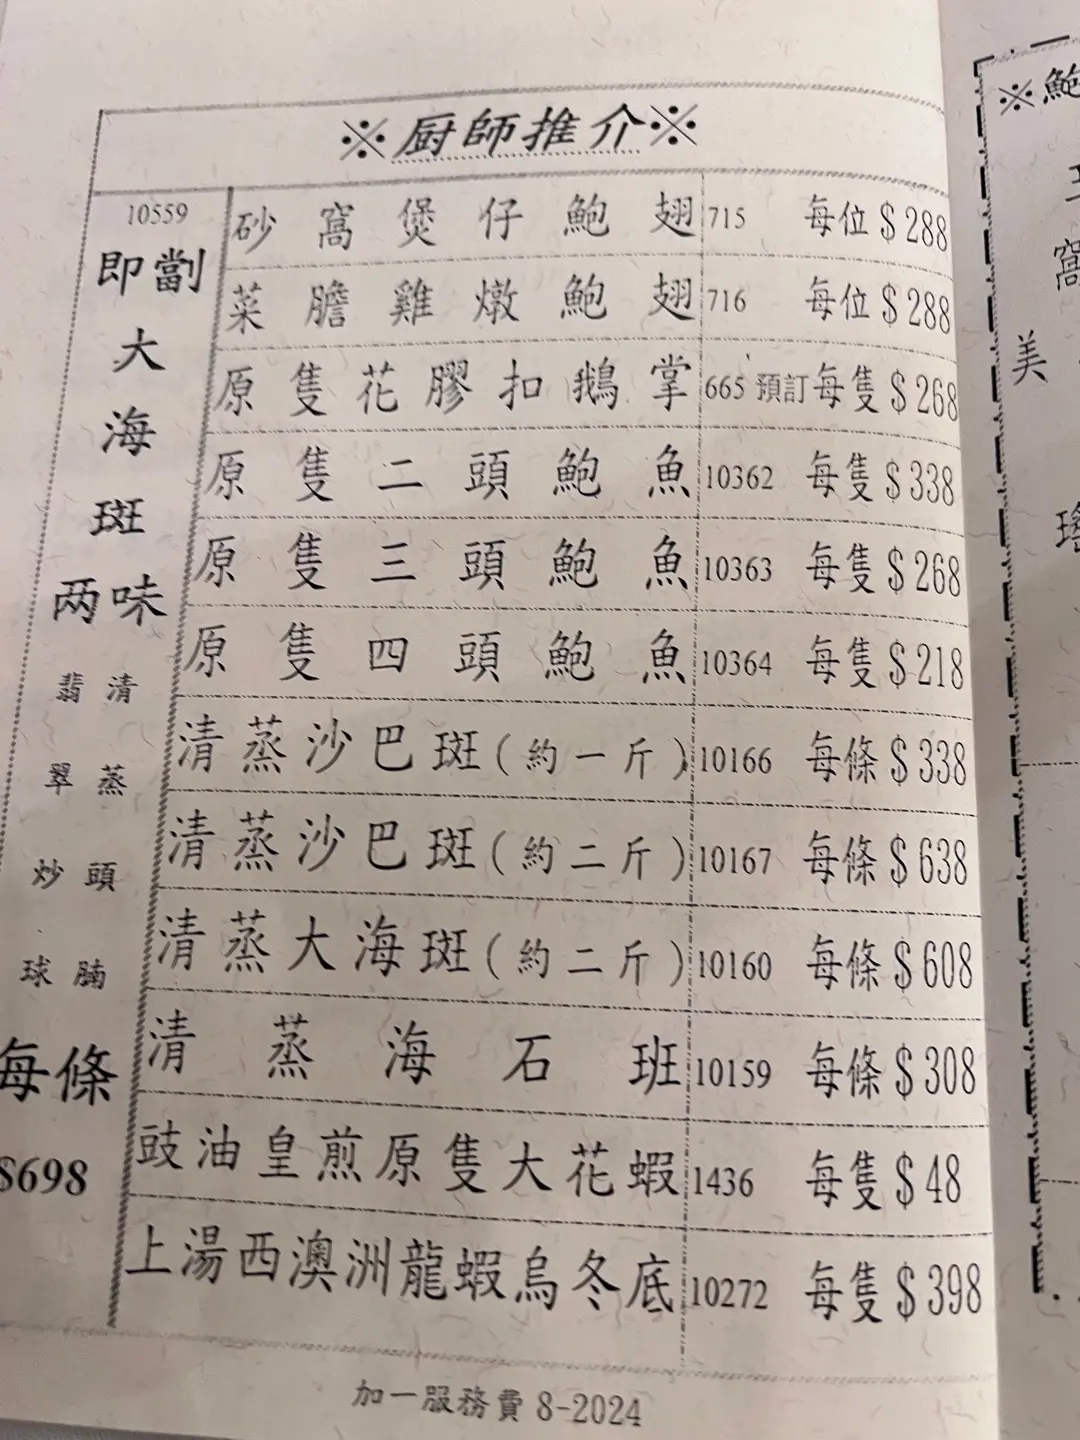 ※厨師推介※
10559
即劏
大
海
斑
两味
翡 清
翠 蒸
炒 頭
球 腩
每條
$698
砂窩煲仔鮑翅 715 每位 $288
菜膽雞燉鮑翅 716 每位 $288
原隻花膠扣鵝掌 665 預訂每隻 $268
原隻二頭鮑魚 10362 每隻 $338
原隻三頭鮑魚 10363 每隻 $268
原隻四頭鮑魚 10364 每隻 $218
清蒸沙巴斑(約一斤) 10166 每條 $338
清蒸沙巴斑(約二斤) 10167 每條 $638
清蒸大海斑(約二斤) 10160 每條 $608
清蒸海石班 10159 每條 $308
豉油皇煎原隻大花蝦 1436 每隻 $48
上湯西澳洲龍蝦烏冬底 10272 每隻 $398
加一服務費 8-2024
※鮑
窩
美